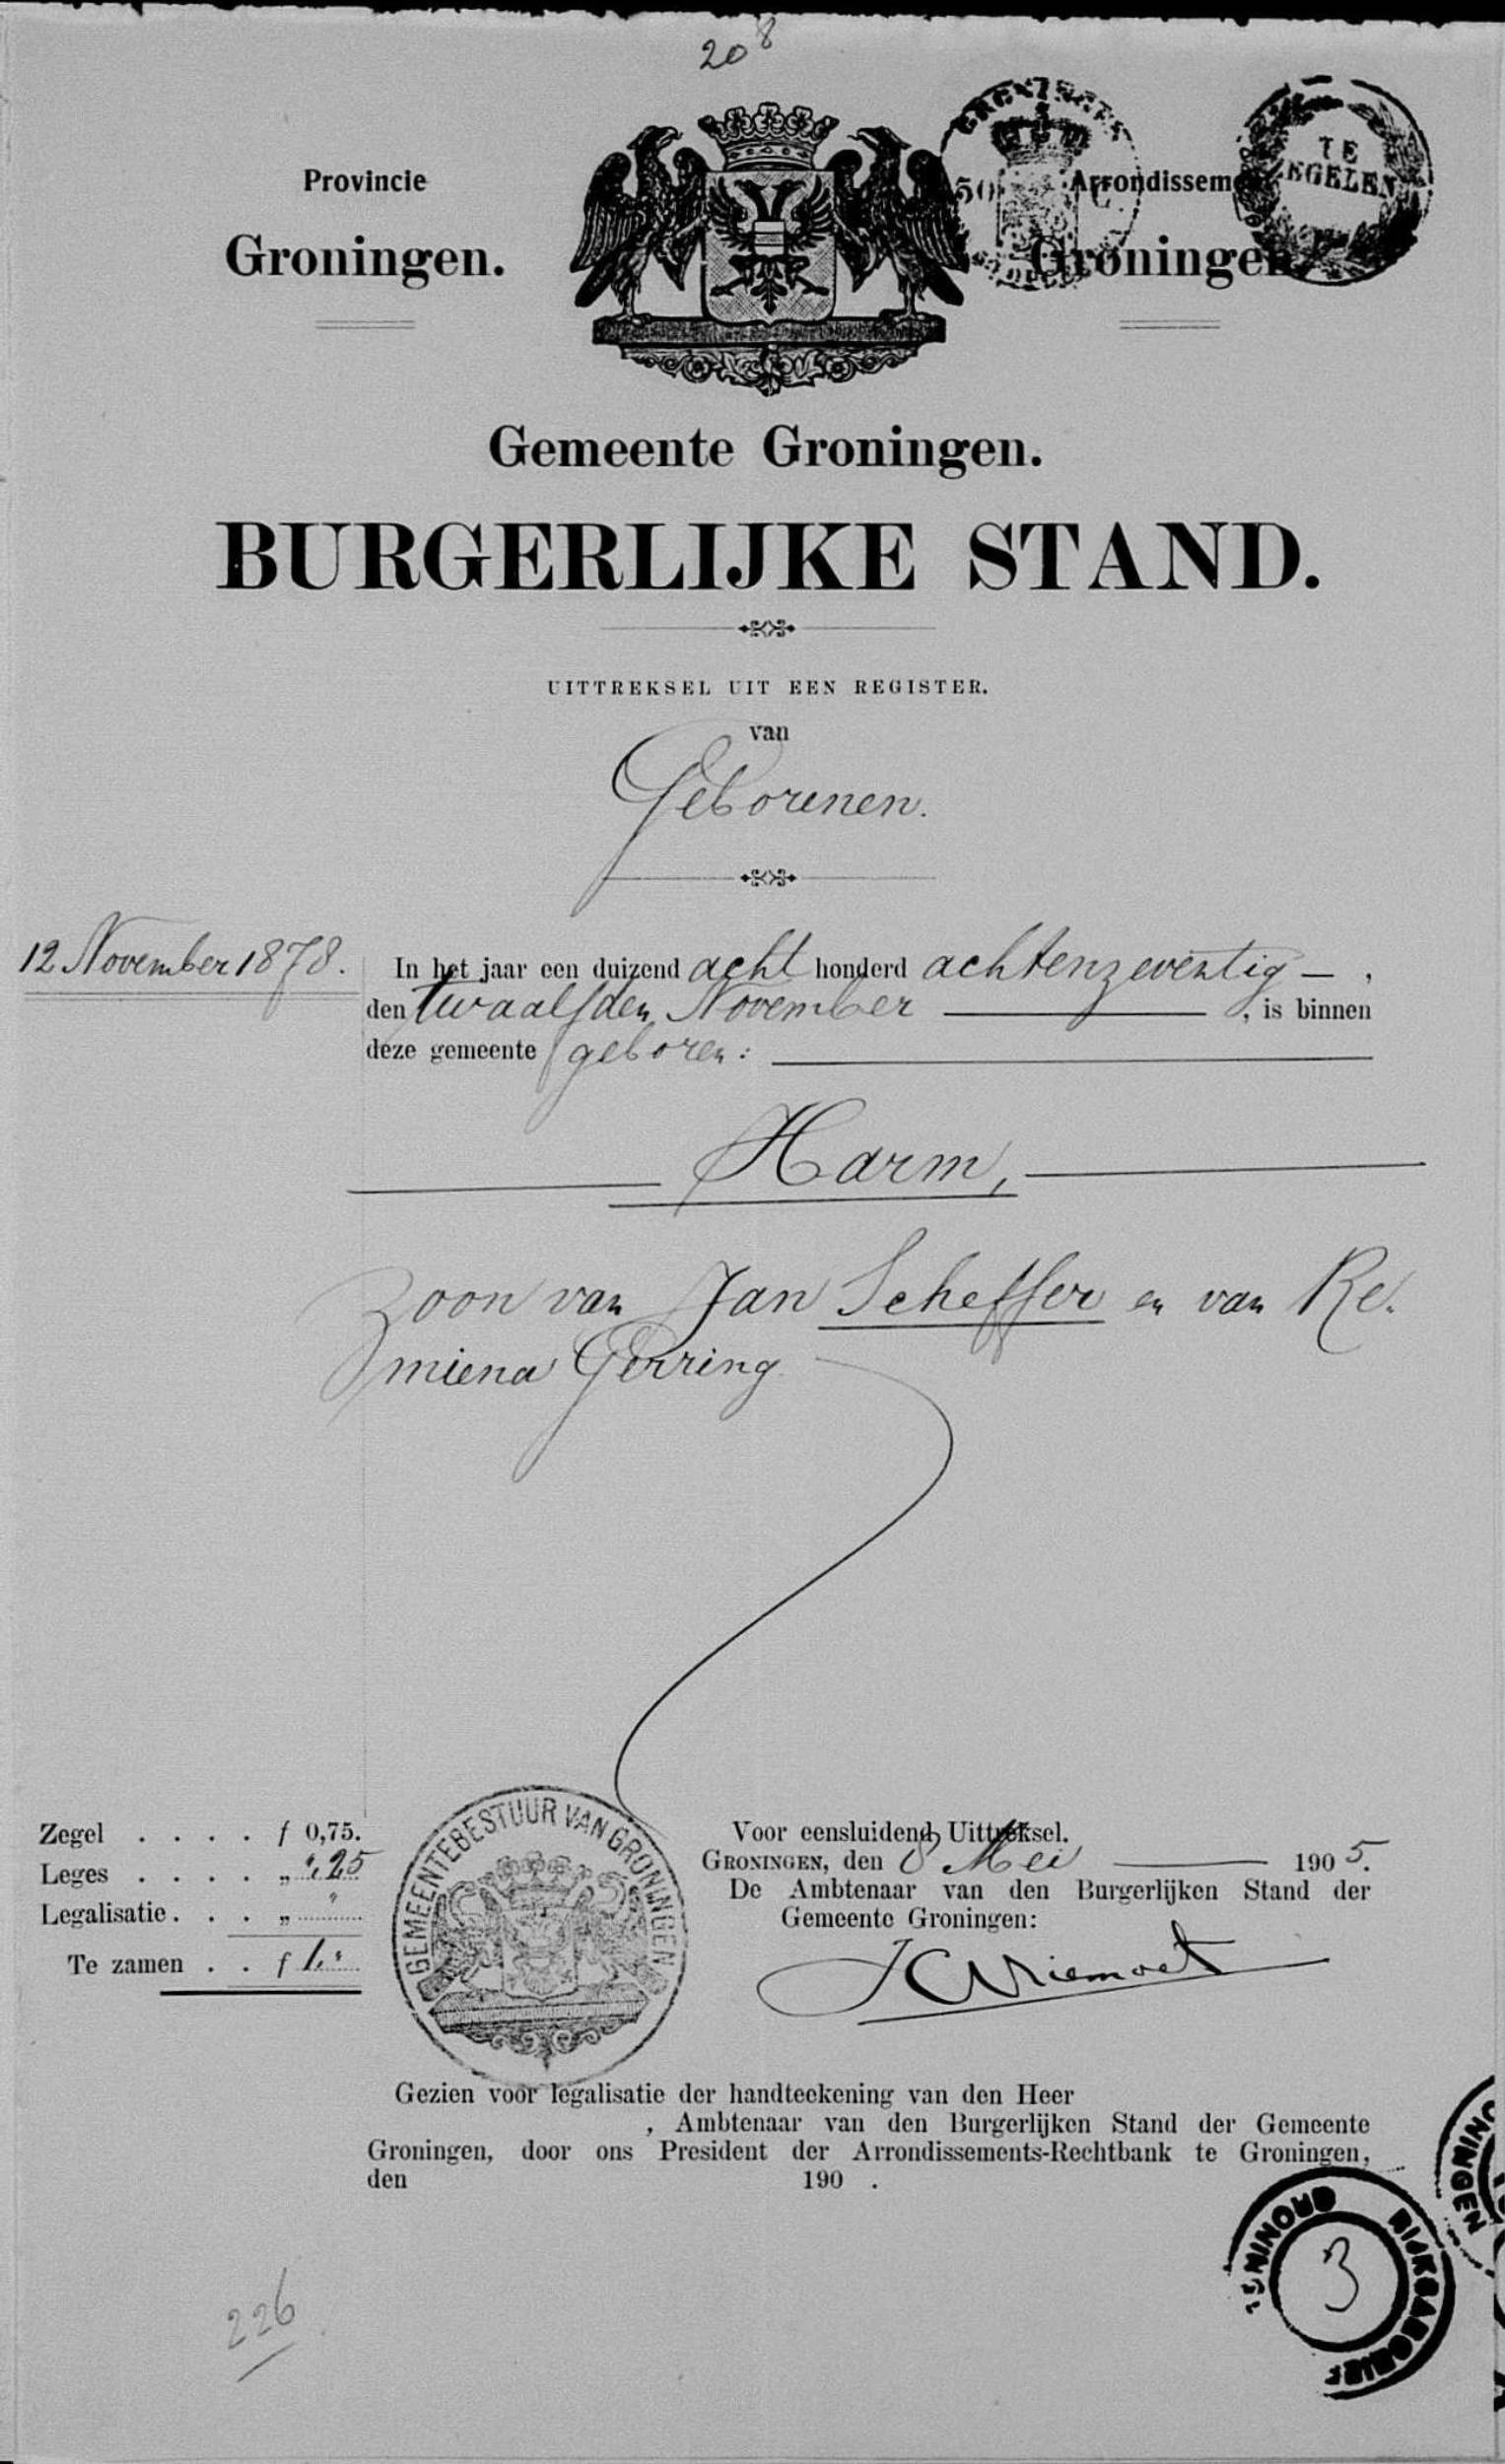 208
Provincie
Groningen.
Arrondissem
Groningen
TE
ZEGELEN
GRONINGEN
50 C.
Gemeente Groningen.
BURGERLIJKE STAND.
UITTREKSEL UIT EEN REGISTER.
van
Geborenen.
12 November 1878.
In het jaar een duizend acht honderd achtenzeventig — ,
den twaalfden November , is binnen
deze gemeente geboren:
Harm,
zoon van Jan Scheffer en van Re-
miena Gerring
Zegel . . . . f 0,75.
Leges . . . . „ ", 25
Legalisatie . . . „ "
Te zamen . . f 1."
GEMEENTEBESTUUR VAN GRONINGEN
Voor eensluidend Uittreksel.
GRONINGEN, den 8 Mei 1905.
De Ambtenaar van den Burgerlijken Stand der
Gemeente Groningen:
Gezien voor legalisatie der handteekening van den Heer
, Ambtenaar van den Burgerlijken Stand der Gemeente
Groningen, door ons President der Arrondissements-Rechtbank te Groningen,
den 190 .
ONINGEN
RIJKSARCHIEF
GRONING
3
226